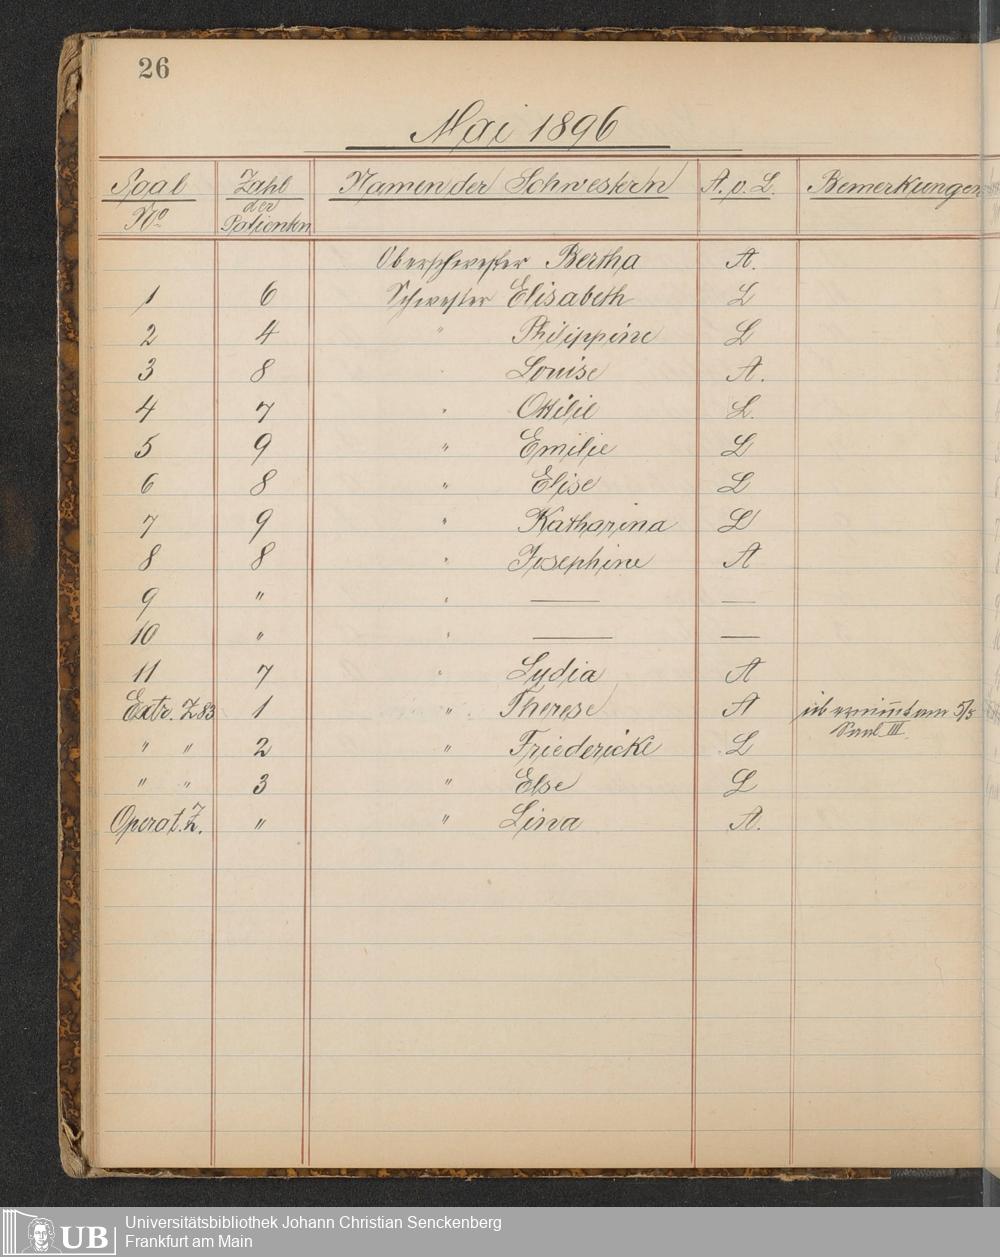 26
Mai 1896
Saal Zahl Namen der Schwestern A. o. L. Bemerkungen
No der
Patienten
Oberschwester Bertha A.
1 6 Schwester Elisabeth L
2 4 " Philippine L
3 8 " Louise A.
4 7 " Ottilie L.
5 9 " Emilie L
6 8 " Elise L
7 9 " Katharina L
8 8 " Josephine A
9 " " — —
10 " " — —
11 7 " Lydia A
Extr. Z 83 1 " Therese A am 5/5
Saal III.
" " 2 " Friedericke L
" " 3 " Else L
Operat. Z. " " Lina A.
UB Universitätsbibliothek Johann Christian Senckenberg
Frankfurt am Main